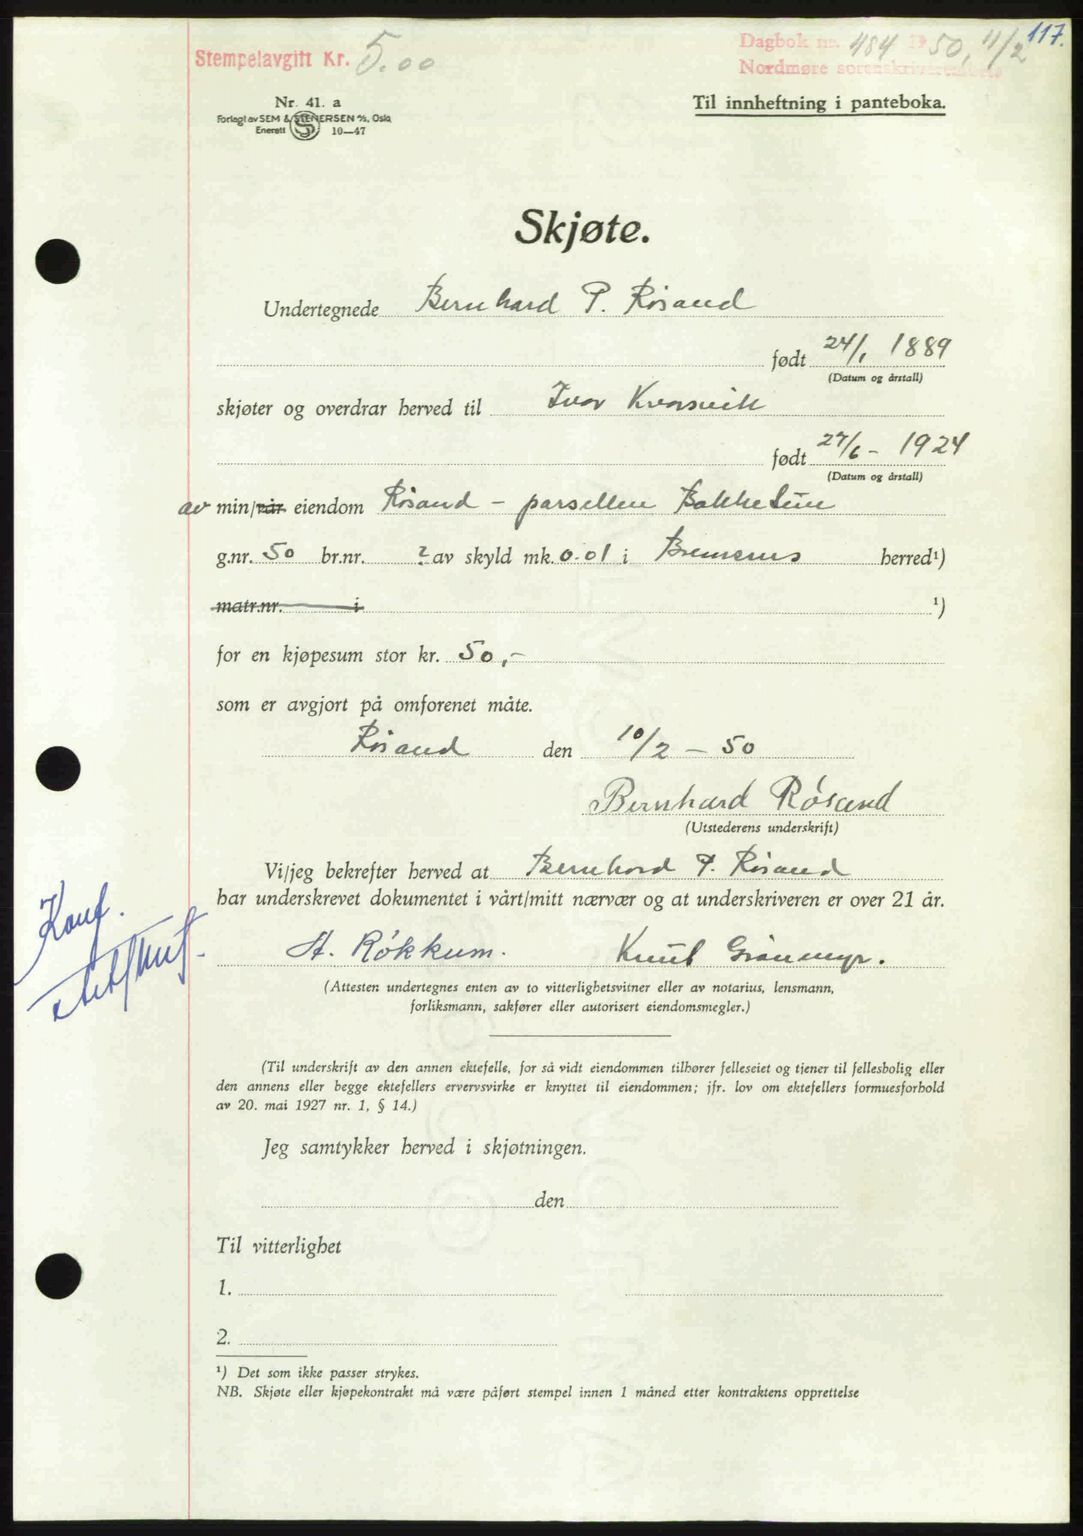 117.
Stempelavgift Kr. 5.00
Dagbok nr. 484 1950, 11/2
Nordmøre sorenskriverembete
Nr. 41. a
Forlagt av SEM & STENERSEN A/S, Oslo
Enerett 10—47
Til innheftning i panteboka.
Skjøte.
Undertegnede Bernhard P. Røsand
født 24/1 1889
(Datum og årstall)
skjøter og overdrar herved til Ivar Kvarsvik
født 27/6 - 1924
(Datum og årstall)
av min/vår eiendom Røsand - parsellen Bakketun
g.nr. 50 br.nr. ? av skyld mk. 0.01 i Bremsnes herred¹)
matr.nr. i ¹)
for en kjøpesum stor kr. 50,-
som er avgjort på omforenet måte.
Røsand den 10/2 - 50
Bernhard Røsand
(Utstederens underskrift)
Vi/jeg bekrefter herved at Bernhard P. Røsand
har underskrevet dokumentet i vårt/mitt nærvær og at underskriveren er over 21 år.
Konf.
H. Røkkum. Knut Grønmyr.
(Attesten undertegnes enten av to vitterlighetsvitner eller av notarius, lensmann,
forliksmann, sakfører eller autorisert eiendomsmegler.)
(Til underskrift av den annen ektefelle, for så vidt eiendommen tilhører felleseiet og tjener til fellesbolig eller
den annens eller begge ektefellers ervervsvirke er knyttet til eiendommen; jfr. lov om ektefellers formuesforhold
av 20. mai 1927 nr. 1, § 14.)
Jeg samtykker herved i skjøtningen.
den
Til vitterlighet
1.
2.
¹) Det som ikke passer strykes.
NB. Skjøte eller kjøpekontrakt må være påført stempel innen 1 måned etter kontraktens opprettelse